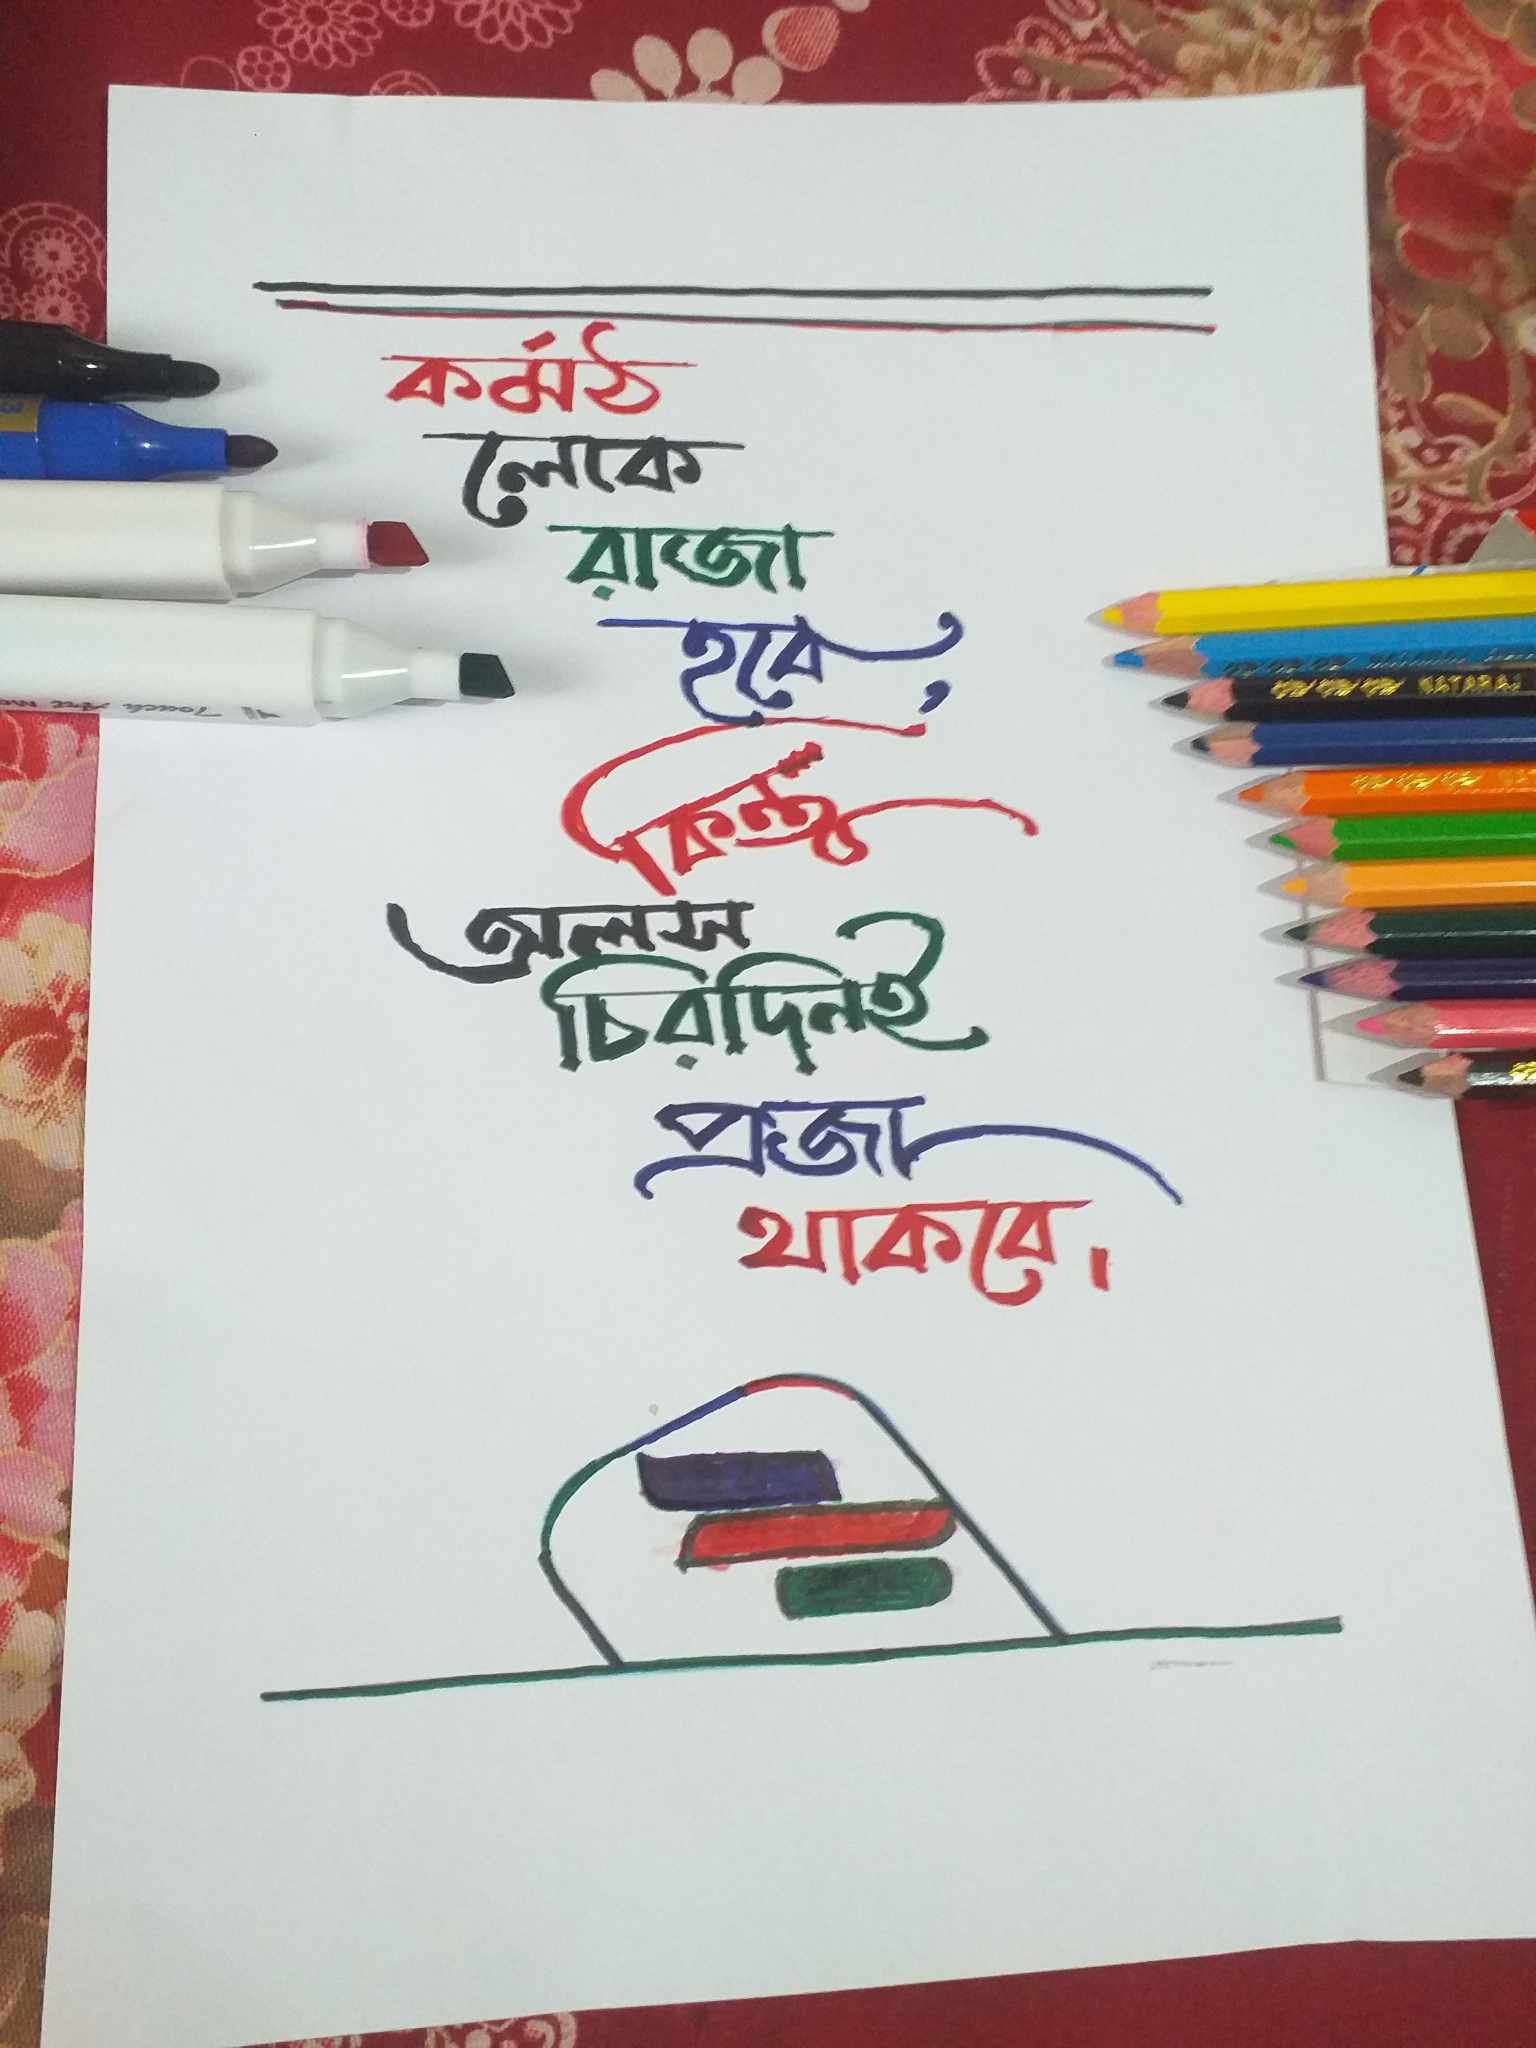 কর্মঠ
লোকে
রাজা
হবে,
কিন্তু
অলস
চিরদিনই
প্রজা
থাকবে।
Touch
NATARAJ